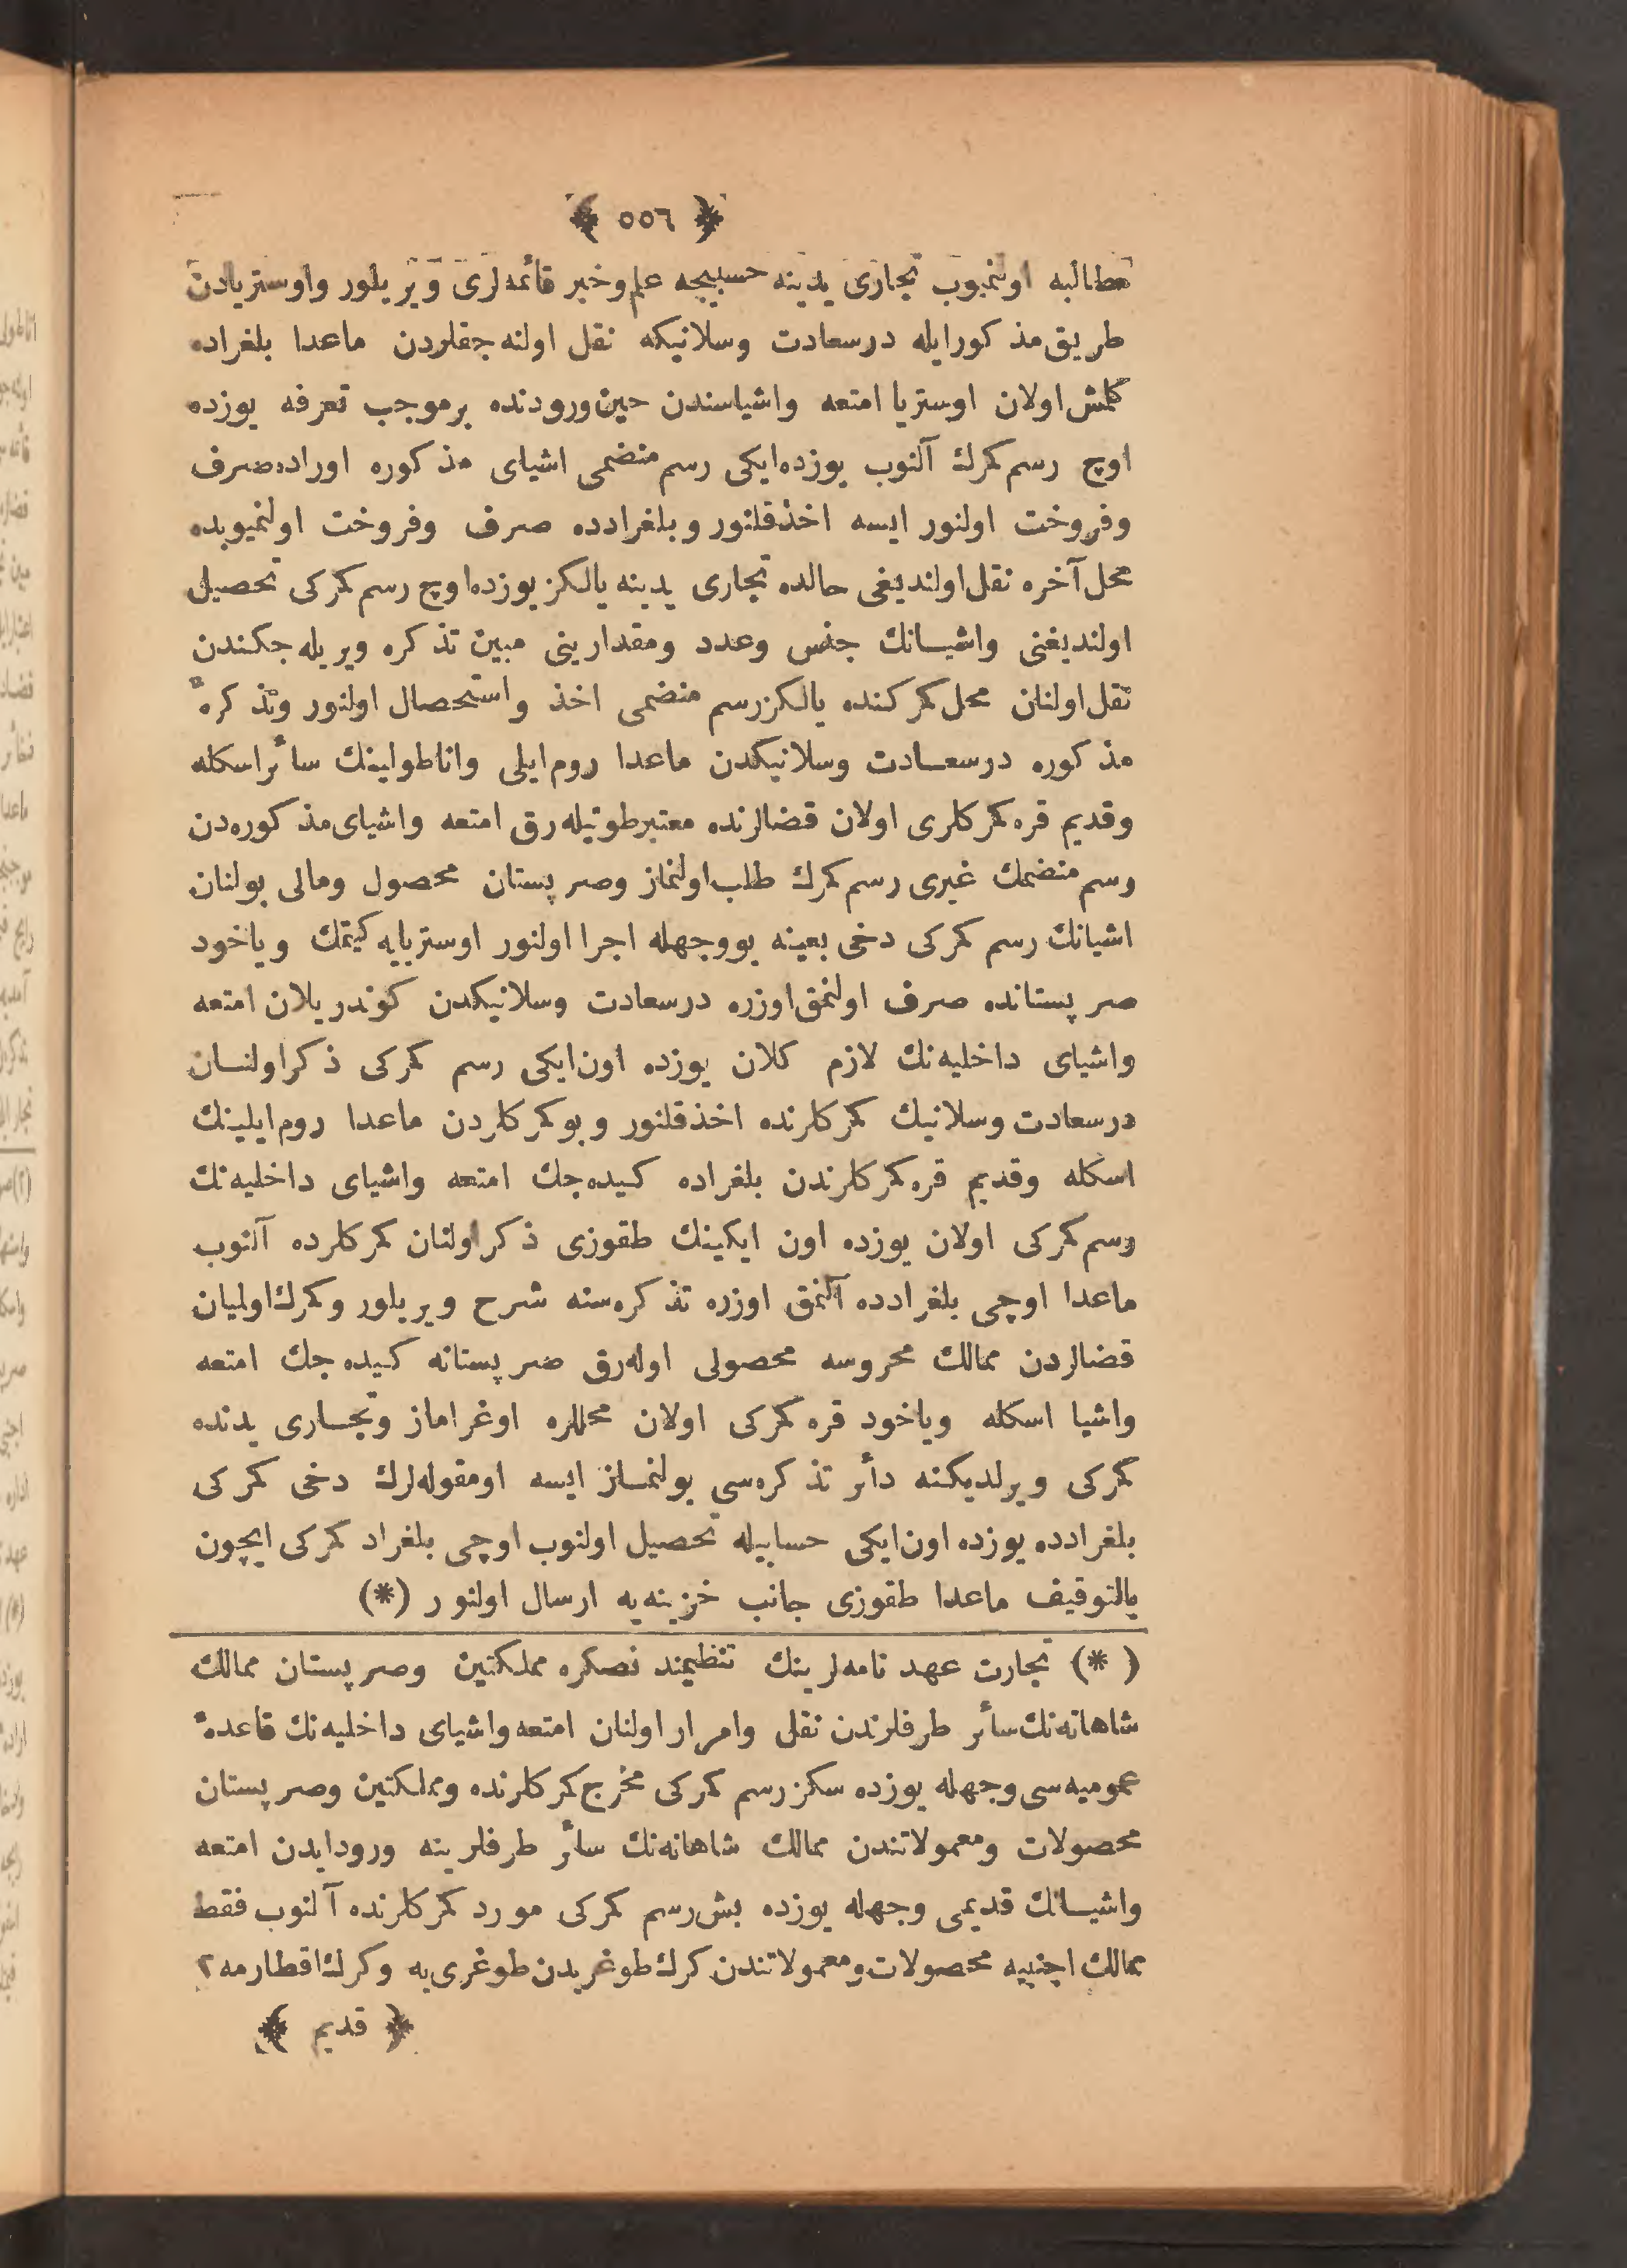 ﴿ ٥٥٦ ﴾
مطالبه اولنمیوب تجاری یدینه حسبیجه علم و خبر قائمه‌لری ویریلور و اوستریادن
طریق مذکور ایله درسعادت وسلانیکه نقل اولنه‌جقلردن ماعدا بلغراده
کلمش اولان اوستریا امتعه واشیاسندن حین ورودنده بر موجب تعرفه یوزده
اوچ رسم کمرك آلنوب یوزده ایکی رسم منضمی اشیای مذکوره اوراده صرف
وفروخت اولنور ایسه اخذ قلنور و بلغرادده صرف وفروخت اولنمیوبده
محل آخره نقل اولندیغی حالده تجاری یدینه یالکز یوزده اوچ رسم کمرکی تحصیل
اولندیغنی واشیانك جنس وعدد ومقدارینی مبین تذکره ویریله‌جکندن
نقل اولنان محل کمرکنده یالکز رسم منضمی اخذ واستحصال اولنور وتذکرهٔ
مذکوره درسعادت وسلانیکدن ماعدا روم ایلی واناطولینك سائر اسکله
وقدیم قره کمرکلری اولان قضالرنده معتبر طوتیله‌رق امتعه واشیای مذکوره‌دن
رسم منضمك غیری رسم کمرك طلب اولنماز وصرپستان محصول ومالی بولنان
اشیانك رسم کمرکی دخی بعینه بو وجهله اجرا اولنور اوستریایه کیتمك ویاخود
صرپستانده صرف اولنمق اوزره درسعادت وسلانیکدن کوندریلان امتعه
واشیای داخلیه‌نك لازم کلان یوزده اون ایکی رسم کمرکی ذکر اولنان
درسعادت وسلانیك کمرکلرنده اخذ قلنور و بو کمرکلردن ماعدا روم ایلینك
اسکله وقدیم قره کمرکلرندن بلغراده کیده‌جك امتعه واشیای داخلیه‌نك
رسم کمرکی اولان یوزده اون ایکینك طقوزی ذکر اولنان کمرکلرده آلنوب
ماعدا اوچی بلغرادده آلنمق اوزره تذکره‌سنه شرح ویریلور وکمرك اولمیان
قضالردن ممالك محروسه محصولی اوله‌رق صرپستانه کیده‌جك امتعه
واشیا اسکله ویاخود قره کمرکی اولان محللره اوغراماز وتجاری یدنده
کمرکی ویرلدیکنه دائر تذکره‌سی بولنماز ایسه اومقوله‌لرك دخی کمرکی
بلغرادده یوزده اون ایکی حسابیله تحصیل اولنوب اوچی بلغراد کمرکی ایچون
بالتوقیف ماعدا طقوزی جانب خزینه‌یه ارسال اولنور (*)
(*) تجارت عهدنامه‌لرینك تنظیمندنصکره مملکتین وصرپستان ممالك
شاهانه‌نك سائر طرفلرندن نقل وامرار اولنان امتعه واشیای داخلیه‌نك قاعدهٔ
عمومیه‌سی وجهله یوزده سکز رسم کمرکی مخرج کمرکلرنده ومملکتین وصرپستان
محصولات ومعمولاتندن ممالك شاهانه‌نك سائر طرفلرینه ورود ایدن امتعه
واشیانك قدیمی وجهله یوزده بش رسم کمرکی مورد کمرکلرنده آلنوب فقط
ممالك اجنبیه محصولات ومعمولاتندن کرك طوغریدن طوغری‌یه وکرك اقطارمه ٢
﴿ قدیم ﴾